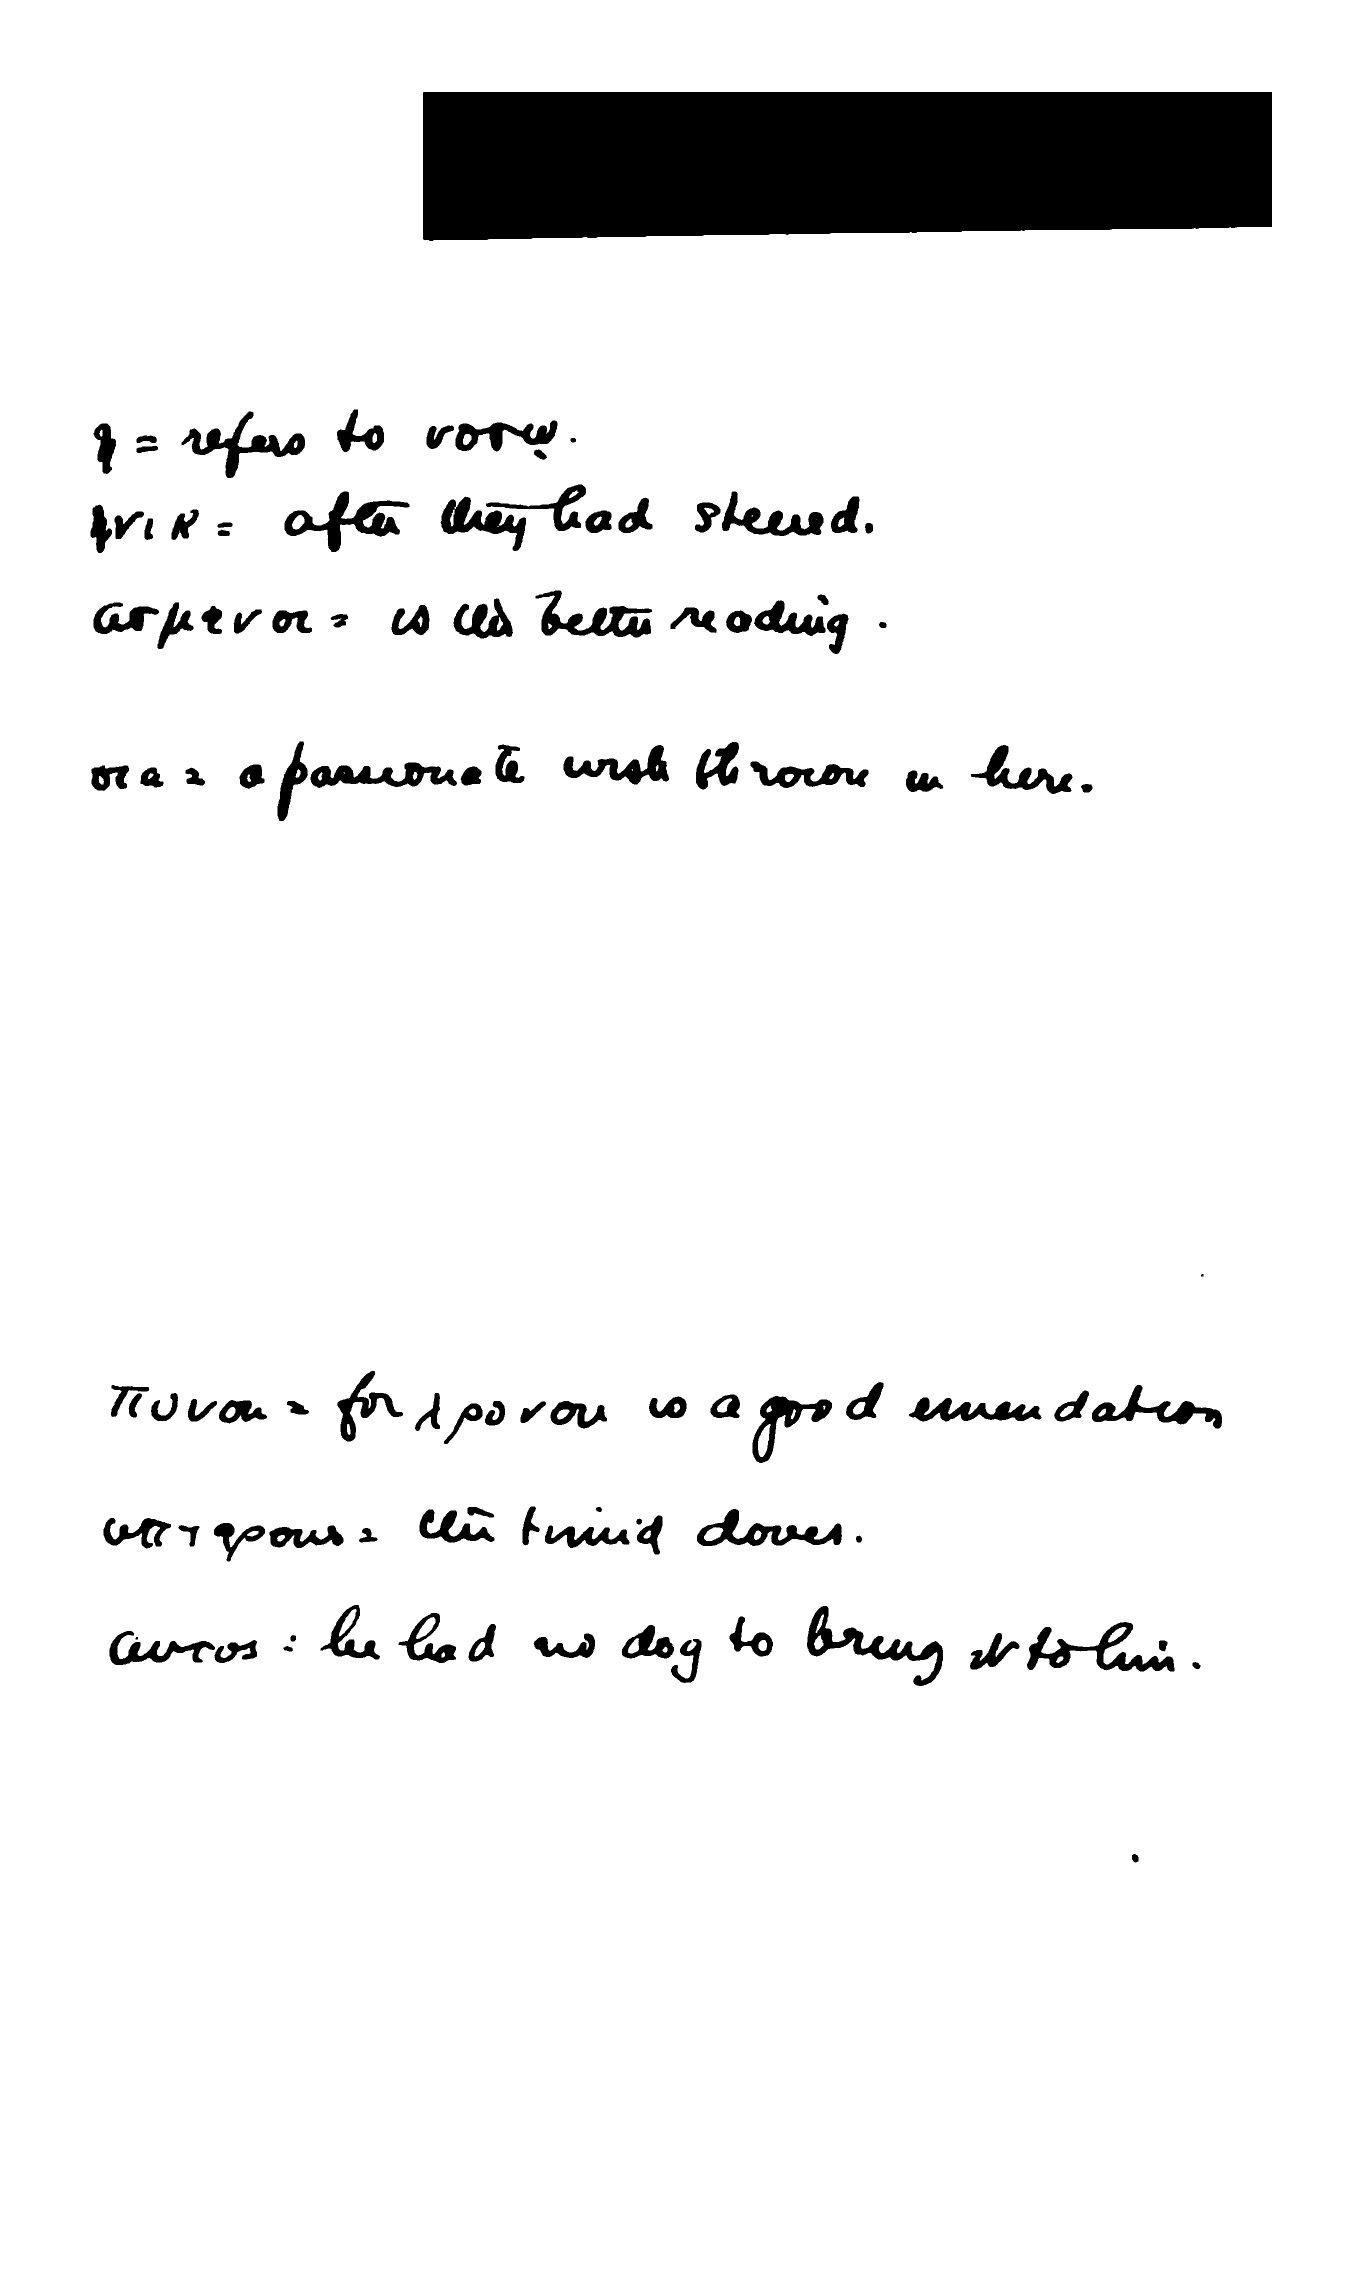 ῃ = refers to νοσῳ.
ηνικ = after they had steered.
ασμενοι = is the better reading.
οια = a passionate wish thrown in here.
πονου = for χρονου is a good emendation
υπ-τερους = the timid doves.
αυτος : he had no dog to bring it to him.